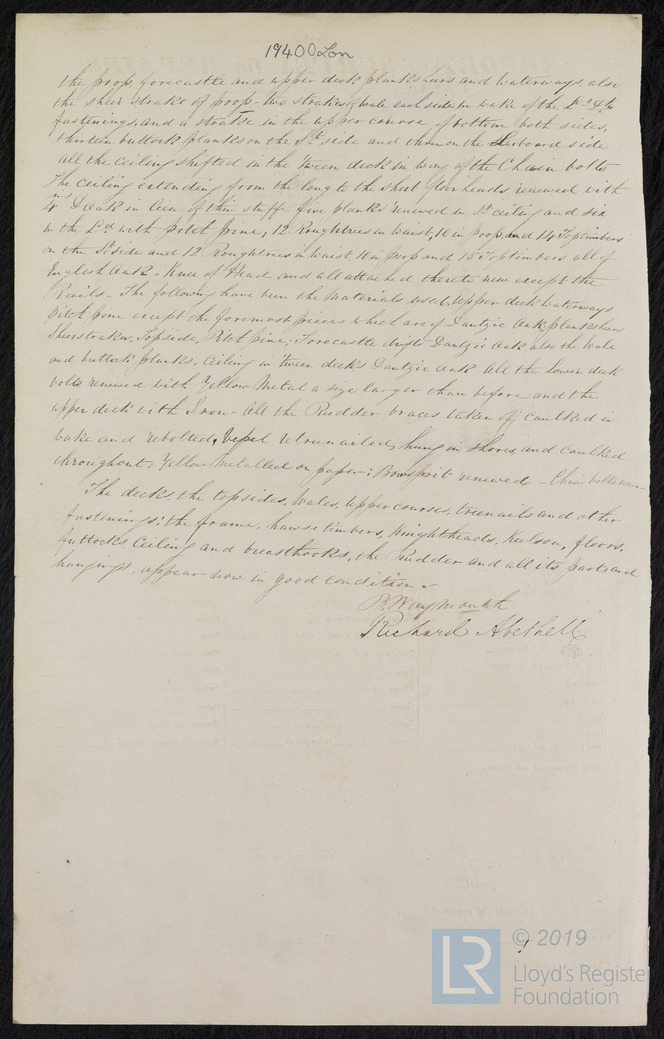 19400 Lon
the poop, forecastle and upper deck planksheers and waterways, also
the sheer strake of poop - two strakes of wale each side in wake of the
fastenings, and a strake in the upper course of bottom both sides,
thirteen buttock planks on the St side and three on the Larboard side
all the Ceiling shifted in the 'tween deck in way of the Chain bolts
The ceiling extending from the long to the short floorheads renewed with
4 in D Oak in lieu of thin stuff five planks renewed in St ceiling and six
in the Ld with Pitch pine, 12 Roughtrees in waist, 10 in poop, and 14 Toptimbers
on the St side and 12 Roughtrees in waist 10 in poop and 15 Toptimbers all of
English Oak - Knee of Head and all attached thereto new except the
Rails - The following have been the Materials used, Upper deck Waterways
Pitch pine except the foremost pieces which are of Dantzic Oak, planksheers
Sheerstrakes, Topside, Pitch pine; Forecastle Dantzic Oak also the wale
and buttock planks, Ceiling in 'tween decks Dantzic Oak All the Lower deck
bolts renewed with Yellow Metal a size larger than before and the
upper deck with Iron - All the Rudder braces taken off caulked in
wake and rebolted, Vessel retreenailed, hung in shores, and caulked
throughout, Yellow Metalled on paper; Bowsprit renewed - Chain bolts
The decks, the topsides, Wales, upper courses, treenails and other
fastenings; the frame, hawse timbers, Knightheads, keelson, floors,
futtocks Ceiling and breasthooks, the Rudder and all its parts and
hangings, appear now in good condition -
Waymouth
Richard Abethell
LR
© 2019
Lloyd's Register
Foundation